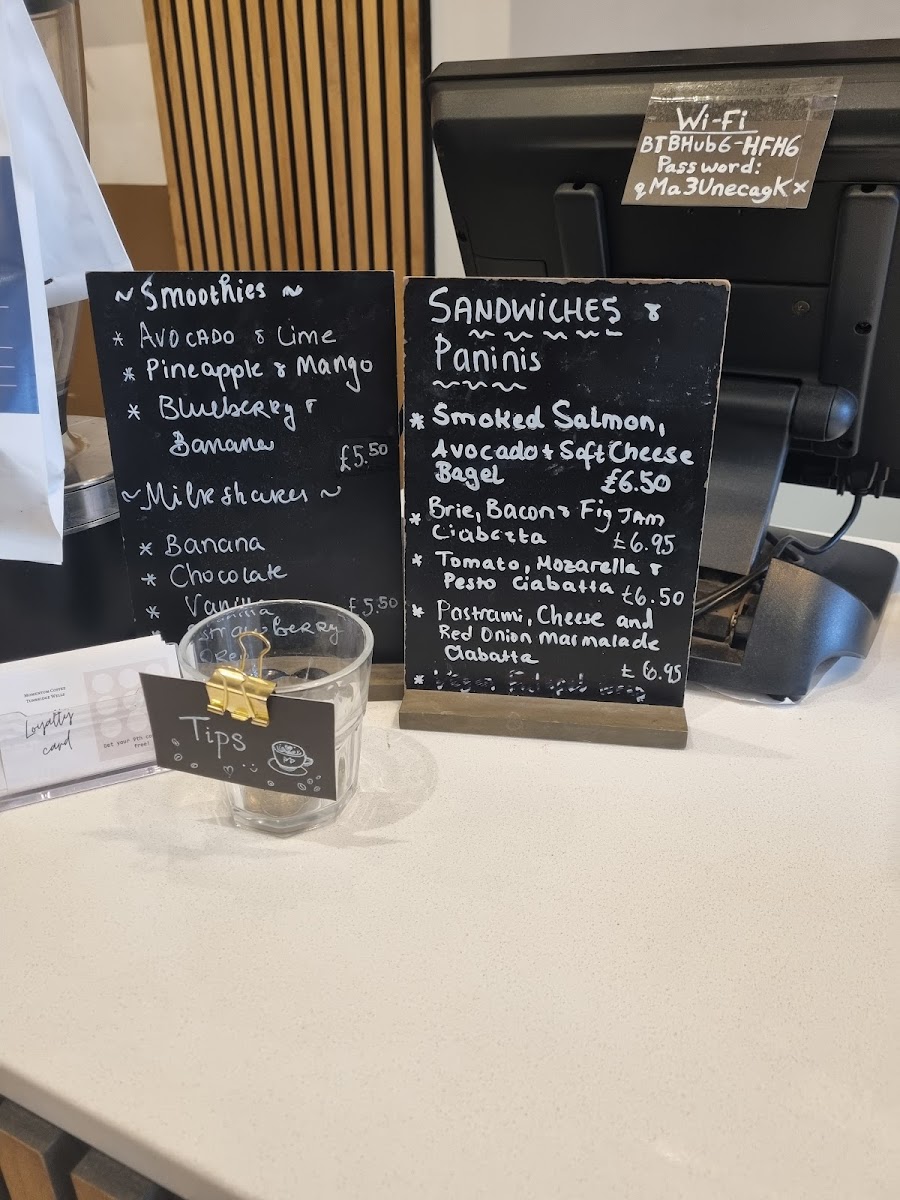 Wi-Fi
BTBHub6-HFH6
Password:
qMa3UnecagKx
~ Smoothies ~
* AVOCADO & Lime
* Pineapple & Mango
* Blueberry &
Banana
£5.50
~ Milkshakes ~
* Banana
* Chocolate
* Vanilla £5.50
Strawberry
SANDWICHES &
Paninis
* Smoked Salmon,
Avocado + Soft Cheese
Bagel £6.50
* Brie, Bacon & Fig JAM
Ciabatta £6.95
* Tomato, Mozarella &
Pesto Ciabatta £6.50
* Pastrami, Cheese and
Red Onion Marmalade
Ciabatta £6.95
* Vegan
Momentum Coffee
Tunbridge Wells
Loyalty
card
Get your 9th
free!
Tips